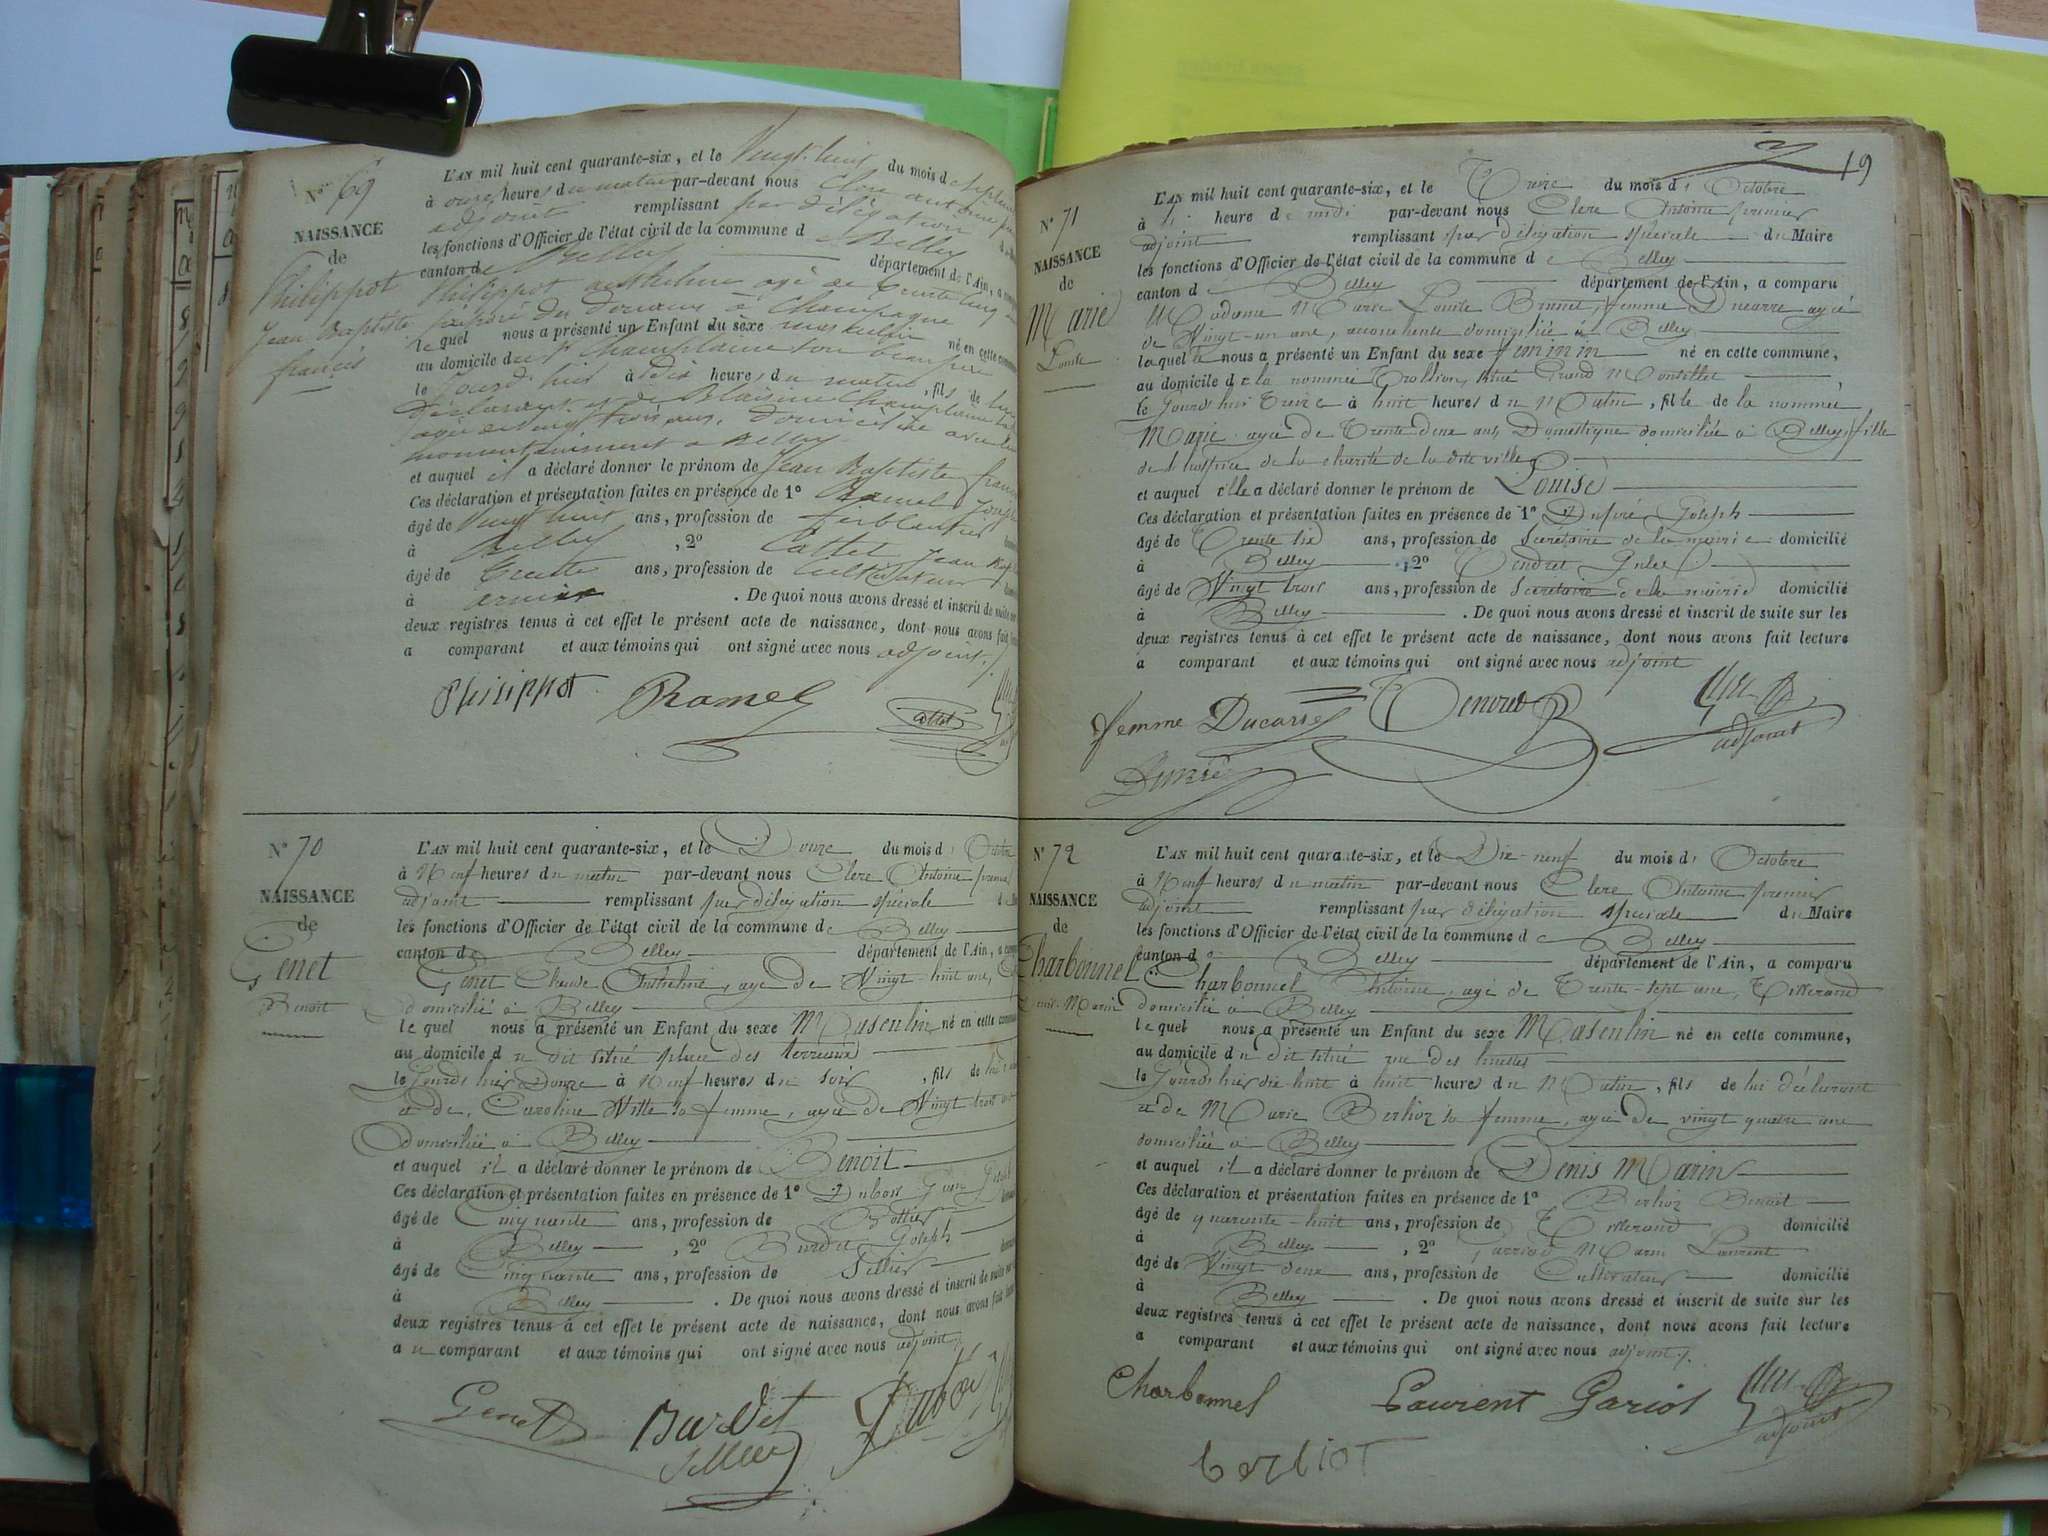 N° 69
NAISSANCE
de
Philippot
Jean Baptiste
françois
L'AN mil huit cent quarante-six, et le Vingt huit du mois de
à onze heures du matin par-devant nous Clerc antoine
adjoint remplissant par délégation
les fonctions d'Officier de l'état civil de la commune de Belley
canton de Belley département de l'Ain, a
Philippot anthelme agé de trente cinq
préposé des Douanes à Champagne
lequel nous a présenté un Enfant du sexe masculin né en cette
au domicile du Sr Champlaine son beau père
le jourd'hui à dix heures du matin, fils de lui
déclarant et de Champlaine
agée de vingt trois ans, domiciliée
momentanément à Belley
et auquel il a déclaré donner le prénom de Jean Baptiste
Ces déclaration et présentation faites en présence de 1° Ramel
âgé de Vingt huit ans, profession de ferblantier
à Belley, 2° Cattet Jean
âgé de trente ans, profession de cultivateur
à . De quoi nous avons dressé et inscrit de suite
deux registres tenus à cet effet le présent acte de naissance, dont nous avons fait
a comparant et aux témoins qui ont signé avec nous adjoint.
Philippot Ramel Cattet
N° 70
NAISSANCE
de
Genet
Benoit
L'AN mil huit cent quarante-six, et le Douze du mois d'
à Neuf heures du matin par-devant nous Clerc Antoine premier
adjoint remplissant par délégation spéciale
les fonctions d'Officier de l'état civil de la commune de Belley
canton de Belley département de l'Ain, a
Genet Claude Anthelme, agé de Vingt-huit ans,
domicilié à Belley
lequel nous a présenté un Enfant du sexe Masculin né en cette
au domicile du dit situé place des terreaux
le Jourd'hui Douze à Neuf heures du soir, fils de lui
et de Caroline Ville sa femme, agée de Vingt trois
domiciliée à Belley
et auquel il a déclaré donner le prénom de Benoit
Ces déclaration et présentation faites en présence de 1° Dubois
âgé de Cinquante ans, profession de Bottier
à Belley, 2° Burdet Joseph
âgé de Cinquante ans, profession de Sellier
à Belley. De quoi nous avons dressé et inscrit de suite
deux registres tenus à cet effet le présent acte de naissance, dont nous avons fait
a u comparant et aux témoins qui ont signé avec nous adjoint
Genet Burdet Dubois
Sellier
19
N° 71
NAISSANCE
de
Marie
Louise
L'AN mil huit cent quarante-six, et le Treize du mois d'Octobre
à heure de midi par-devant nous Clerc Antoine premier
adjoint remplissant par délégation spéciale du Maire
les fonctions d'Officier de l'état civil de la commune de Belley
canton de Belley département de l'Ain, a comparu
Madame Marie Louise femme Ducarre agée
de Vingt-un ans, domiciliée à Belley
laquelle nous a présenté un Enfant du sexe féminin né en cette commune,
au domicile de la nommée situé Grand
le Jourd'hui Treize à huit heures du Matin, fille de la nommée
Marie agée de Trente deux ans, Domestique domiciliée à Belley, fille
de l'hospice de la charité de la dite ville
et auquel elle a déclaré donner le prénom de Louise
Ces déclaration et présentation faites en présence de 1° Joseph
âgé de Trente six ans, profession de Secrétaire de la mairie domicilié
à Belley, 2° Tendret Jules
âgé de Vingt trois ans, profession de Secrétaire de la mairie domicilié
à Belley. De quoi nous avons dressé et inscrit de suite sur les
deux registres tenus à cet effet le présent acte de naissance, dont nous avons fait lecture
a comparant et aux témoins qui ont signé avec nous adjoint
femme Ducarre Tendret
adjoint
N° 72
NAISSANCE
de
Charbonnel
Denis-Marin
L'AN mil huit cent quarante-six, et le Dix-neuf du mois d'Octobre
à Neuf heures du matin par-devant nous Clerc Antoine premier
adjoint remplissant par délégation spéciale du Maire
les fonctions d'Officier de l'état civil de la commune de Belley
canton de Belley département de l'Ain, a comparu
Charbonnel Antoine, agé de Trente-sept ans, Tisserand
domicilié à Belley
lequel nous a présenté un Enfant du sexe Masculin né en cette commune,
au domicile du dit situé rue des
le Jourd'hui dix-huit à huit heures du Matin, fils de lui déclarant
et de Marie Berlioz sa femme, agée de vingt quatre ans
domiciliée à Belley
et auquel il a déclaré donner le prénom de Denis Marin
Ces déclaration et présentation faites en présence de 1° Berlioz Benoit
âgé de quarante-huit ans, profession de Tisserand domicilié
à Belley, 2° Marin Laurent
âgé de Vingt deux ans, profession de Cultivateur domicilié
à Belley. De quoi nous avons dressé et inscrit de suite sur les
deux registres tenus à cet effet le présent acte de naissance, dont nous avons fait lecture
a comparant et aux témoins qui ont signé avec nous adjoint
Charbonnel Laurent Gariot
adjoint
berliot